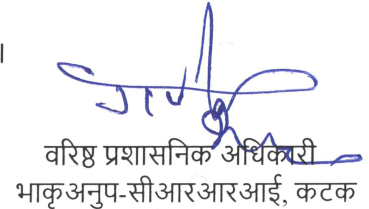 ।
वरिष्ठ प्रशासनिक अधिकारी
भाकृअनुप-सीआरआरआई, कटक